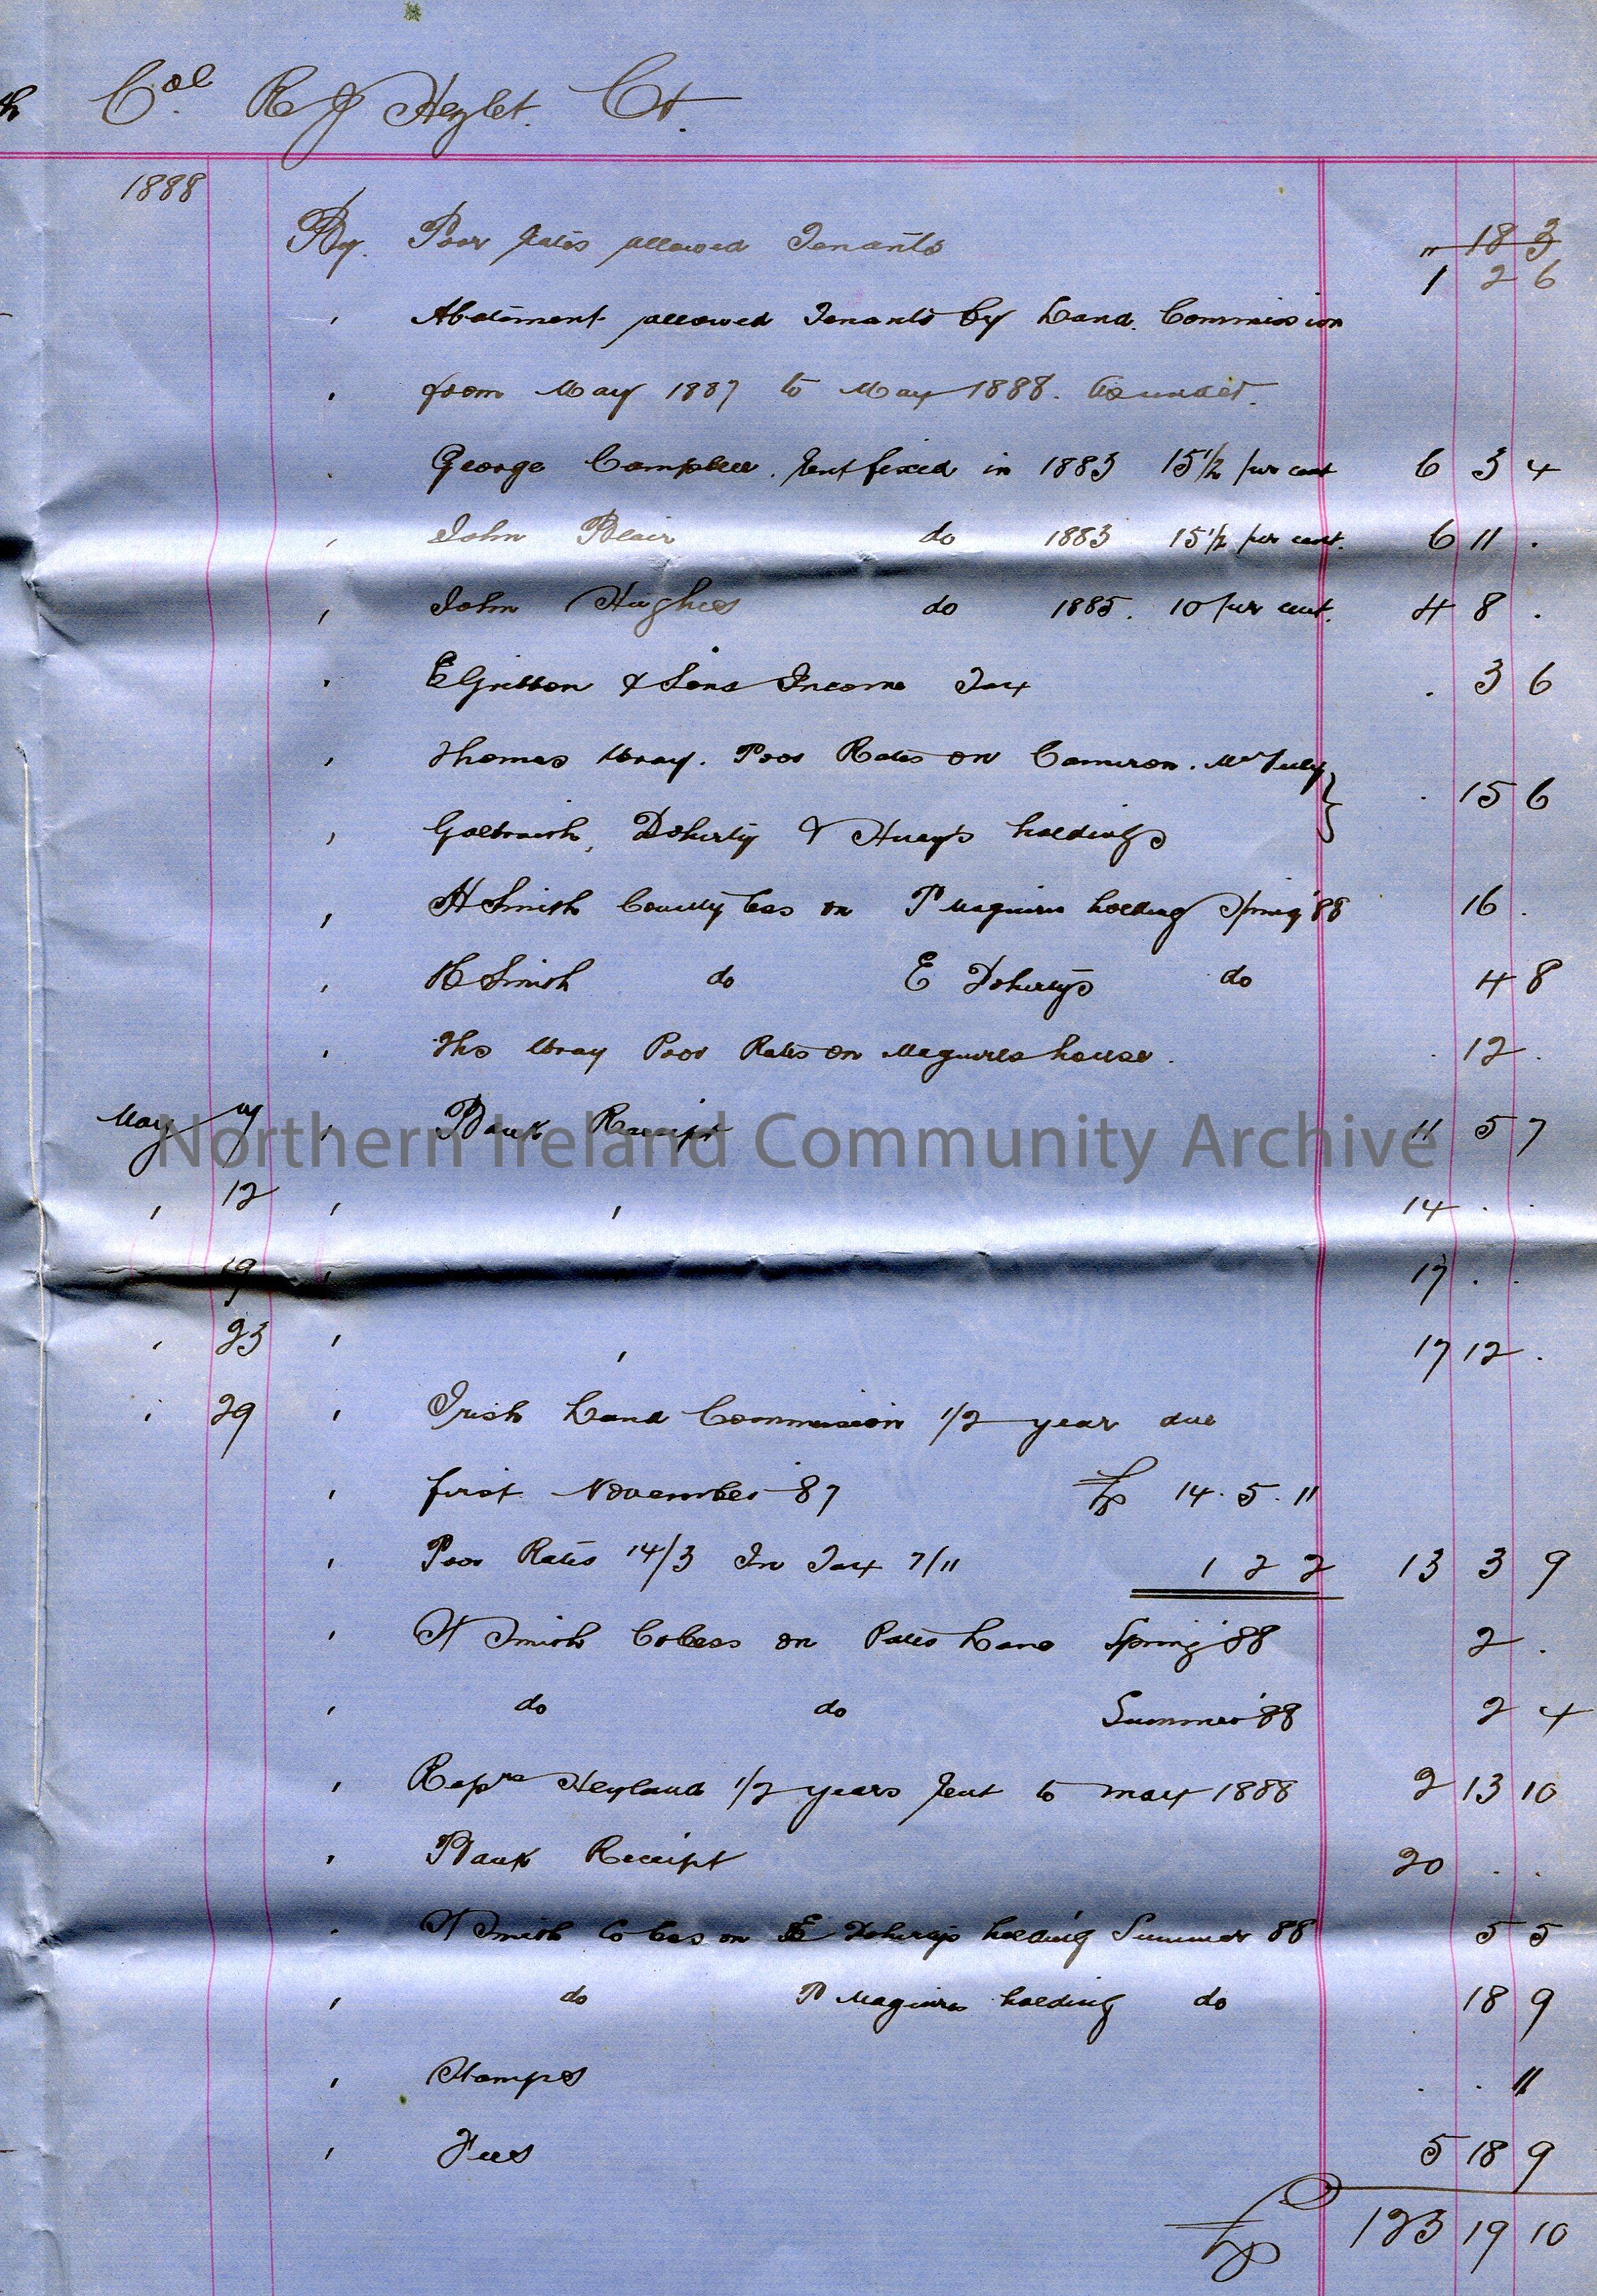 h Col. R J Hezlet. Cr.
1888
By. Poor rates allowed Tenants " 18 3
1 2 6
, Abatement allowed Tenants by Land Commission
, from May 1887 to May 1888. as under.
George Campbell. rent fixed in 1883 15 1/2 per cent 6 3 4
, John Blair do 1883 15 1/2 per cent. 6 11 .
, John Hughes do 1885. 10 per cent. 4 8 .
, E Gribbon & Sons Income Tax . 3 6
, Thomas Wray. Poor Rates on Cameron. McFully
, Galbraith, Doherty & Huey's holdings } . 15 6
, H Smith County Cess on P Maguires holding Spring '88 16 .
, H Smith do E Doherty's do 4 8
, Ths Wray Poor Rates on Maguires house. . 12 .
May 7 , Bank Receipt 11 5 7
, 12 , , 14 . .
19 , 17 . .
, 23 , , 17 12 .
, 29 , Irish Land Commission 1/2 year due
, first November 87 £ 14. 5. 11
, Poor Rates 14/3 In Tax 7/11 1 2 2 13 3 9
, H Smith Co Cess on Land Spring '88 2 .
, do do Summer '88 2 4
, Reps Heyland 1/2 years rent to may 1888 2 13 10
, Bank Receipt 20 . .
. H Smith Co Cess on E Dohertys holding Summer 88 5 5
, do P Maguires holding do 18 9
, Stamps . . 11
, Fees 5 18 9
£ 123 19 10
Northern Ireland Community Archive